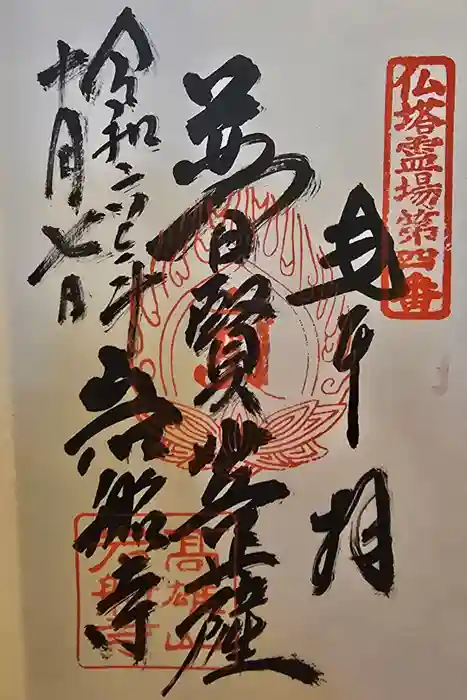 仏塔霊場第四番
奉拝
普賢菩薩
令和 年
十月七日
岩船寺
高雄山
岩船寺